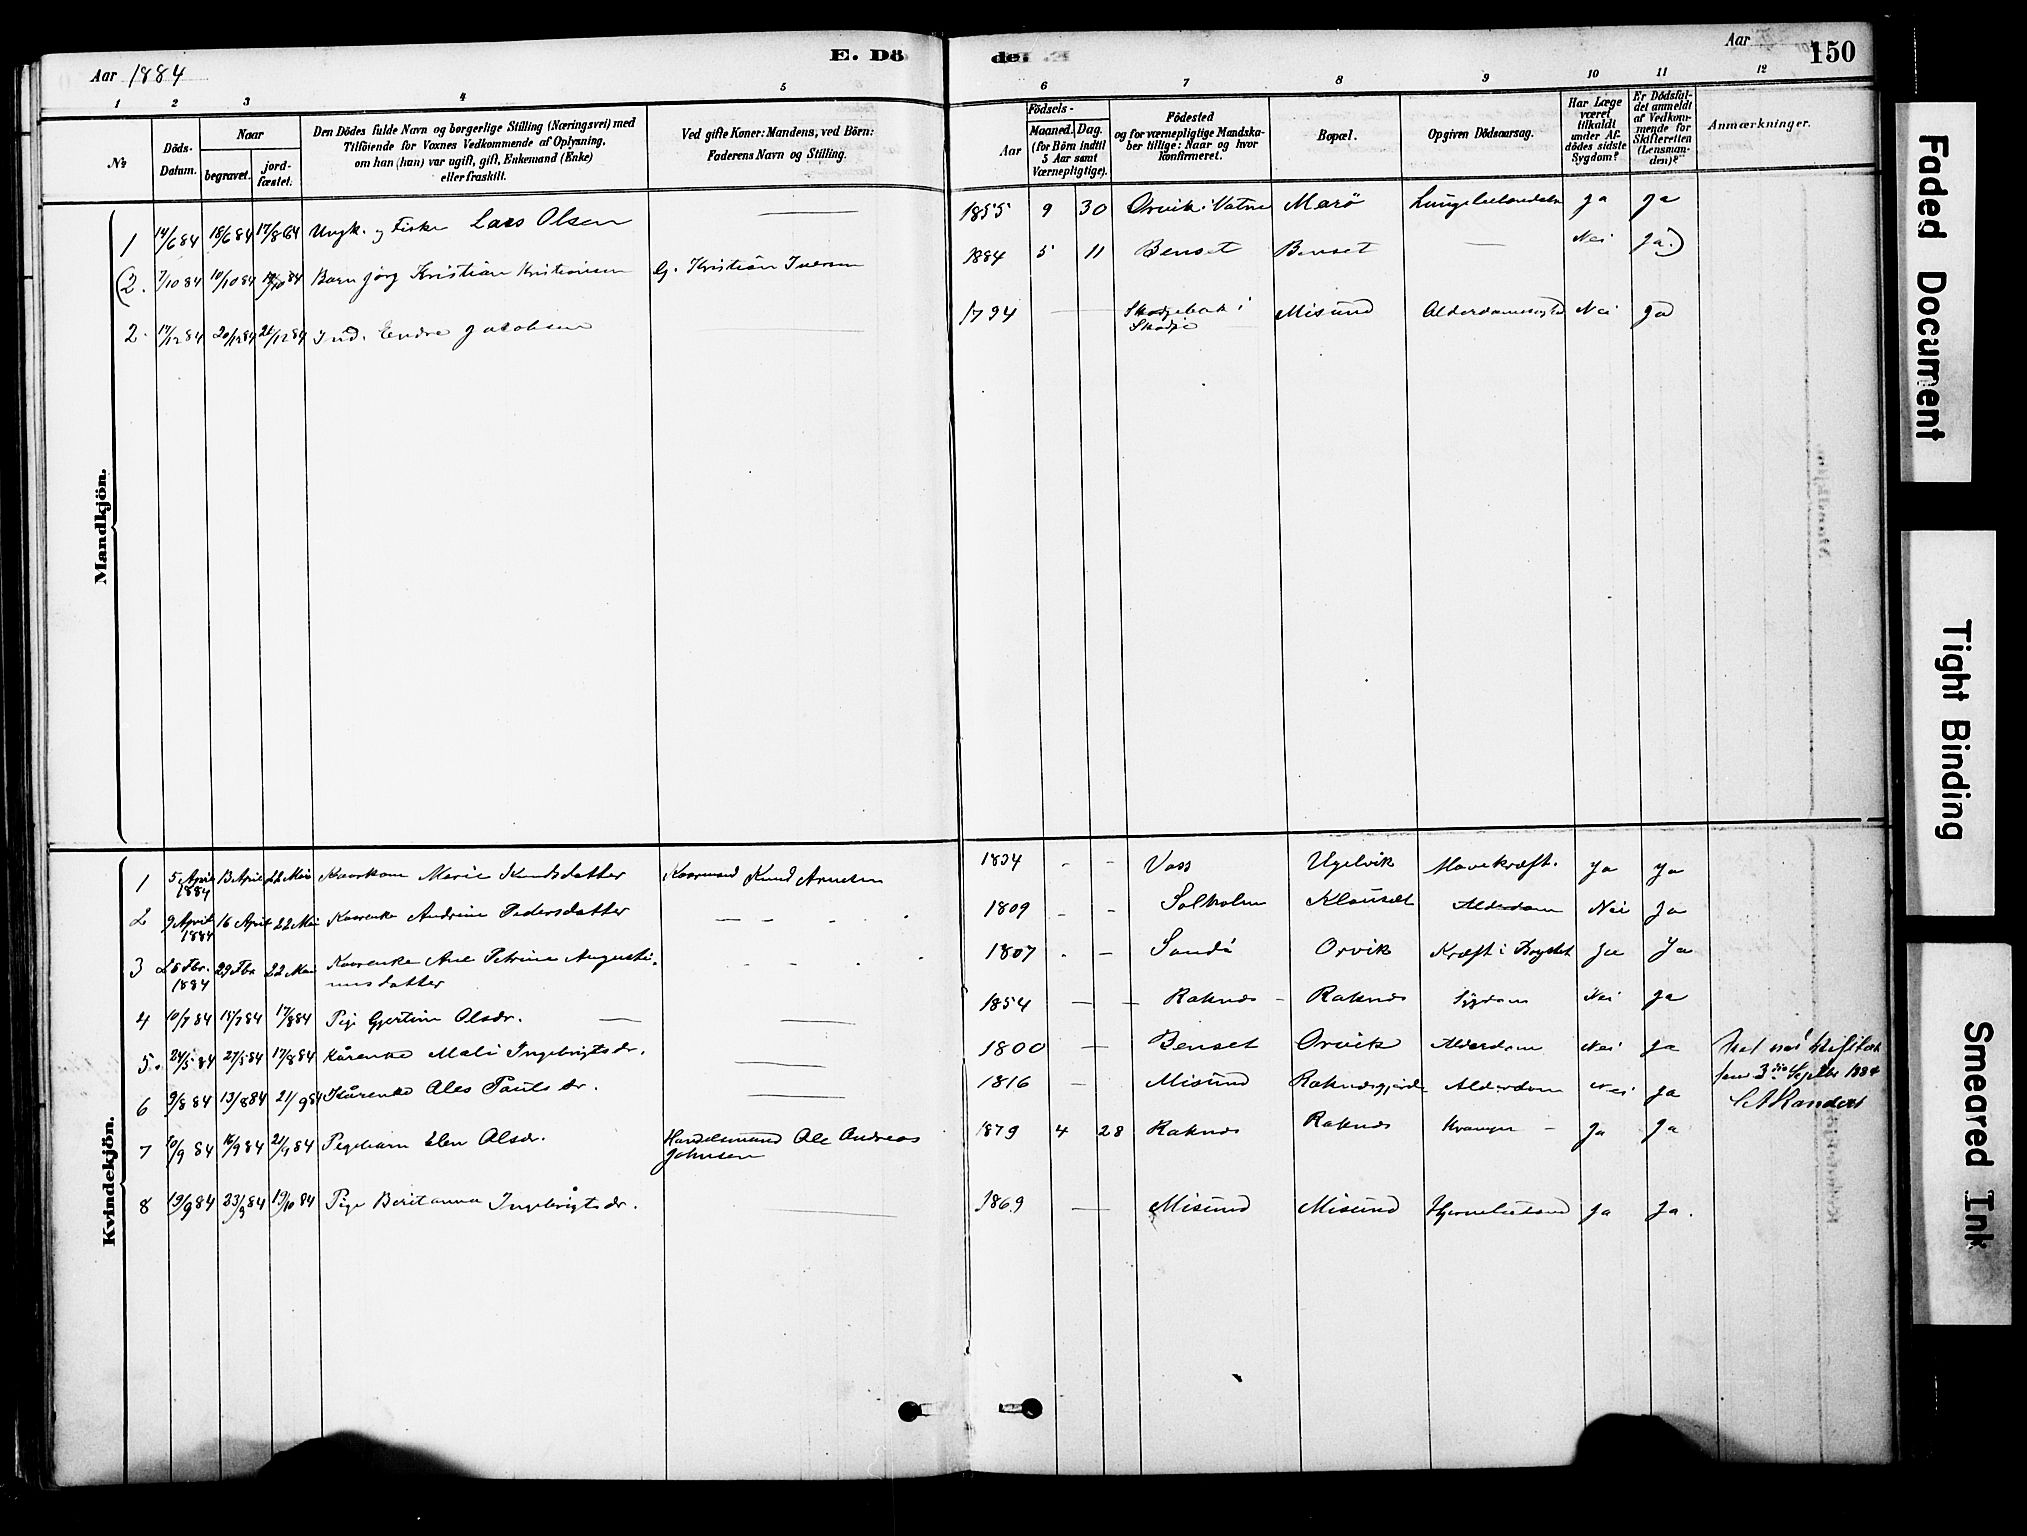 E. Döde.
Aar 1884
Aar 150
1 2 3 4 5 6 7 8 9 10 11 12
№
Döds-Datum.
Naar
begravet.
jordfæstet.
Den Dödes fulde Navn og borgerlige Stilling (Næringsvei) med
Tilföiende for Voxnes Vedkommende af Oplysning,
om han (hun) var ugift, gift, Enkemand (Enke)
eller fraskilt.
Ved gifte Koner: Mandens, ved Börn:
Faderens Navn og Stilling.
Födsels-
Aar
Maaned. Dag.
(for Börn indtil
5 Aar samt
Værnepligtige).
Födested
og for værnepligtige Mandska-
ber tillige: Naar og hvor
konfirmeret.
Bopæl.
Opgiven Dödsaarsag.
Har Læge
været
tilkaldt
under Af-
dödes sidste
Sygdom?
Er Dödsfal-
det anmeldt
af Vedkom-
mende for
Skifteretten
(Lensman-
den)?
Anmærkninger.
Mandkjön.
1 14/6 84 18/6 84 17/8 84 Ungk. og Fisker Lars Olsen — 1855 9 30 Orvik i Vatne Marø Ja Ja
(2. 7/10 84 10/10 84 19/10 84 Barn Jørg Kristian Kristiansen G. Kristian Iversen 1884 5 11 Benset Benset — Nei Ja.)
2. 17/12 84 20/12 84 21/12 84 Ind. Endre Jacobsen — 1794 — Skodje Misund Alderdomssygd Nei Ja
Kvindekjön.
1 5 April 1884 13 April 22 Mai Kaarkone Marie Knudsdatter Kaarmand Knud Arnesen 1834 - - Voss Ugelvik Mavekræft. Ja Ja
2 9 April 1884 16 April 22 Mai Kaarenke Andrine Pedersdatter — - - - 1809 - - Solholm Klauset Alderdom Nei Ja
3 25 Fbr. 1884 29 Fbr 22 Mai Kaarenke Ane Petrine Augusti-
nusdatter - - - - 1807 - - Sandø Orvik Kræft i Brystet Ja Ja
4 10/7 84 15/7 84 17/8 84 Pige Gjertine Olsdr. — — 1854 — — Raknes - Raknes Sygdom Nei Ja
5. 24/5 84 27/5 84 17/8 84 Kårenke Mali Ingebrigtsdr. — 1800 — Benset Orvik Alderdom Nei Ja
6 9/8 84 13/8 84 21/9 84 Kårenke Ales Paulsdr. — 1816 — Misund Raknesgjerde Alderdom Nei Ja
3die Septbr 1884
Randers
7 10/9 84 16/9 84 21/9 84 Pigebarn Elen Olsdr. Handelsmand Ole Andreas
Johnsen 1879 4 28 Raknes Raknes - Ja Ja
8 19/9 84 23/9 84 19/10 84 Pige Beritanna Ingebrigtsdr. — 1869 — Misund Misund Hjernebetænd Ja Ja.
Faded Document
Tight Binding
Smeared Ink